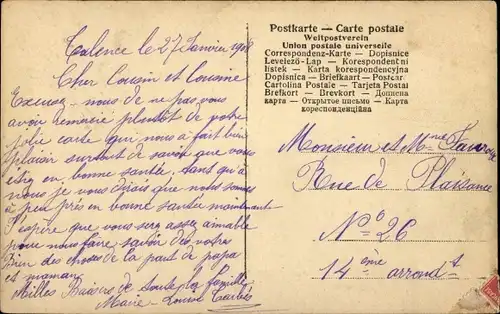 Talence le 27 Janvier
Cher Cousin et Cousine
Excusez-nous de ne pas vous
avoir remercié plus tôt de votre
jolie carte qui nous a fait bien
plaisir surtout de savoir que vous
en bonne santé, tant qu'à
nous je vous dirais que nous sommes
à peu près en bonne santée maintenant
J'espère que vous serez assez aimable
pour nous faire savoir des votres
Bien des choses de la part de papa
et maman
Milles Baisers de toute la famille
Marie-Louise
Postkarte — Carte postale
Weltpostverein
Union postale universelle
Correspondenz-Karte — Dopisnice
Levelező-Lap — Korespondentní
lístek — Karta korespondencyjna
Dopisnica — Briefkaart — Postcar
Cartolina Postale — Tarjeta Postal
Brefkort — Brevkort — Дописна
карта — Открытое письмо — Карта
кореспонденційна
Monsieur et Mme
Rue de Plaisance
No 26
14 ème arrondt